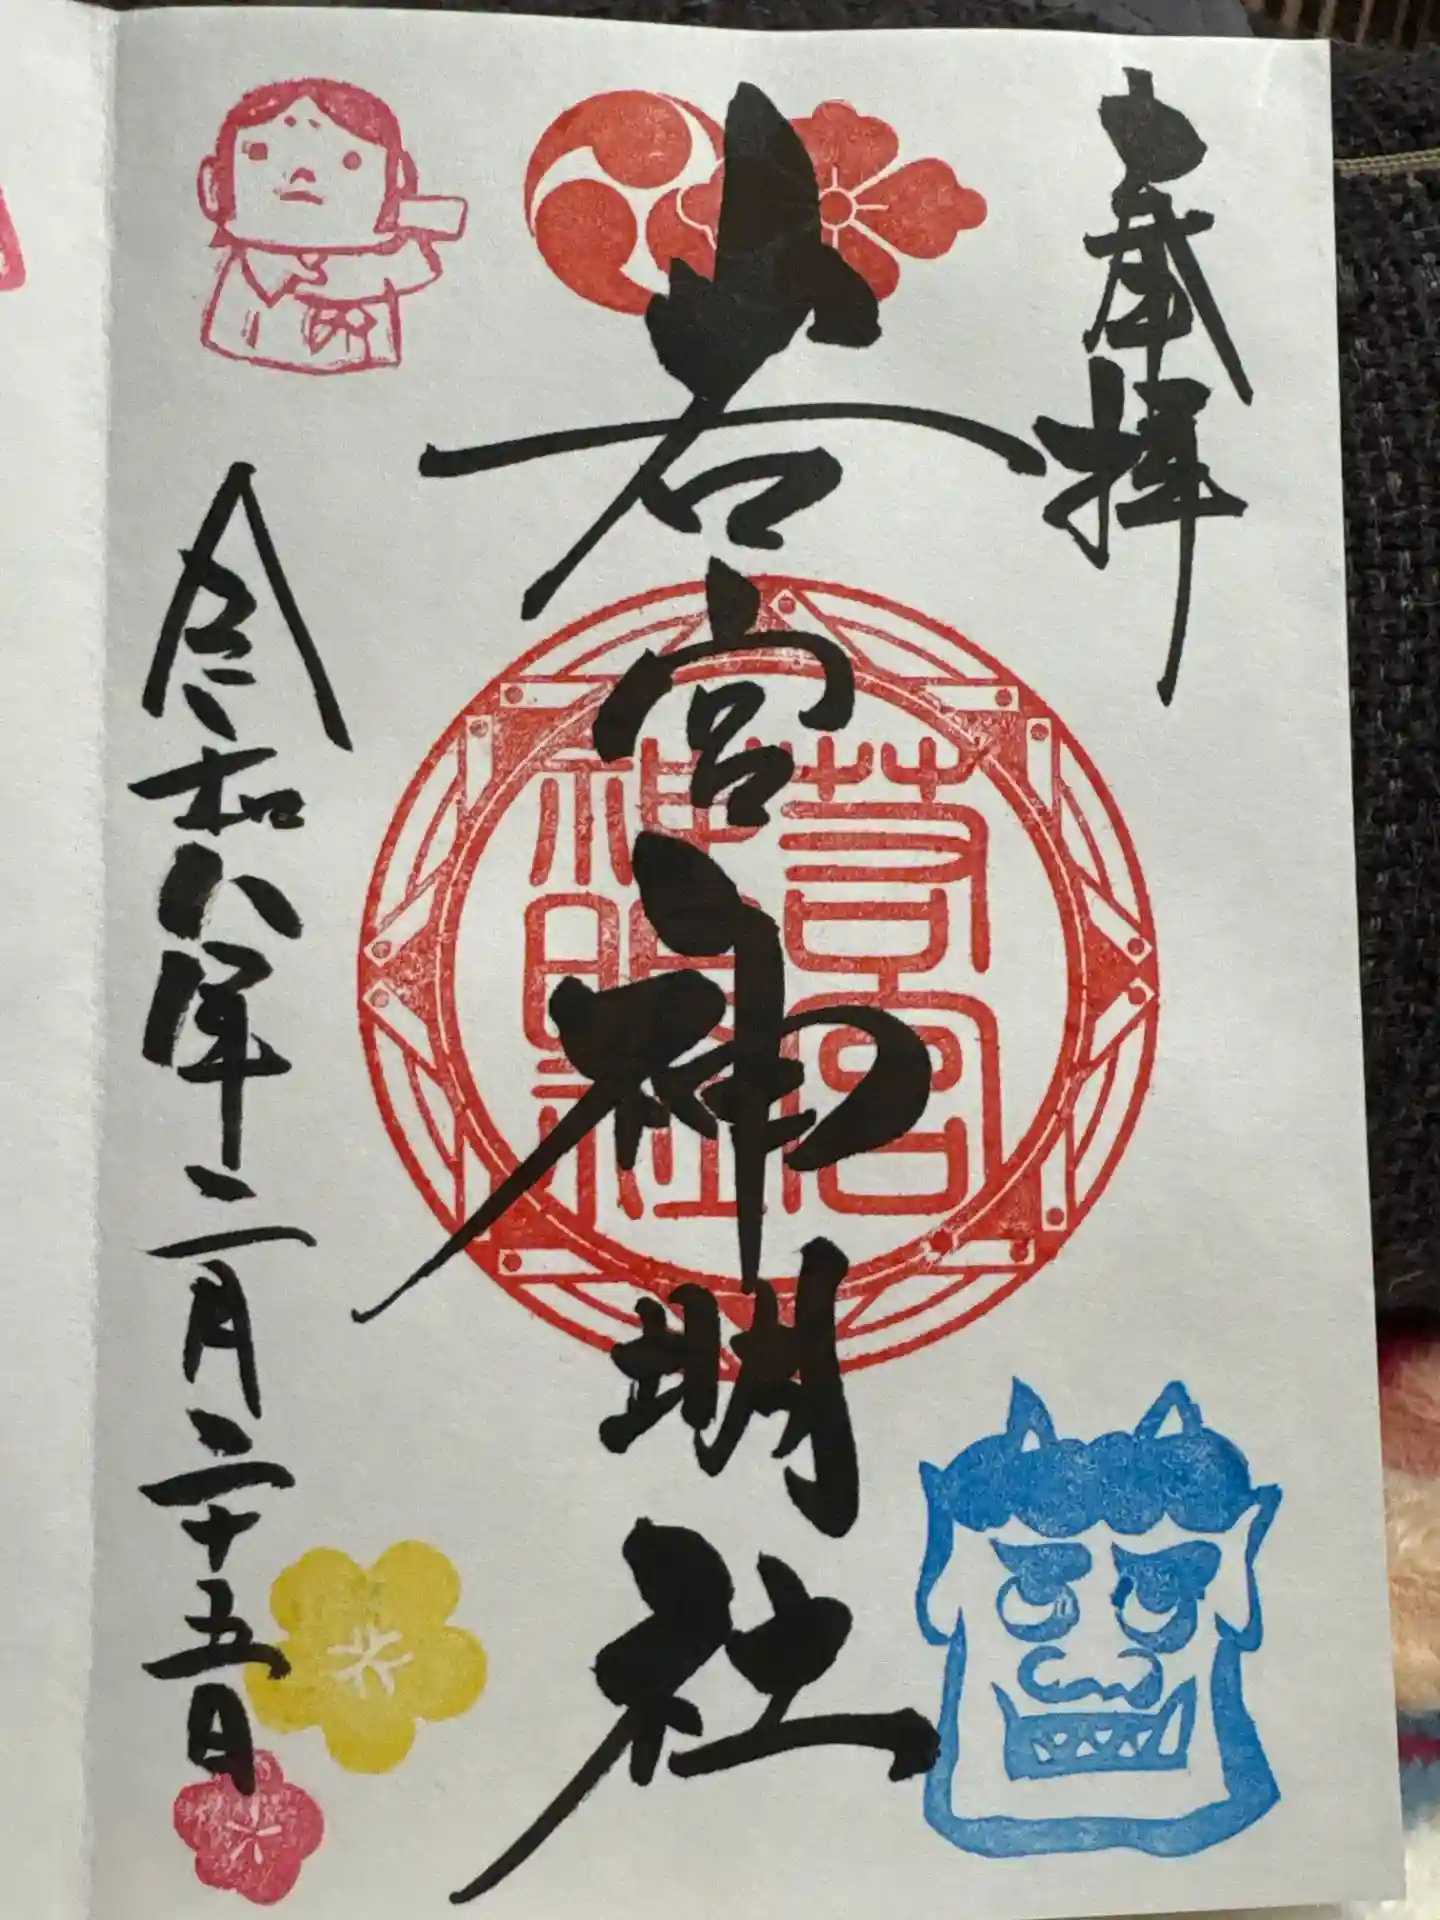 奉拝
若宮神明社
若宮
神明社
令和八年二月二十五日